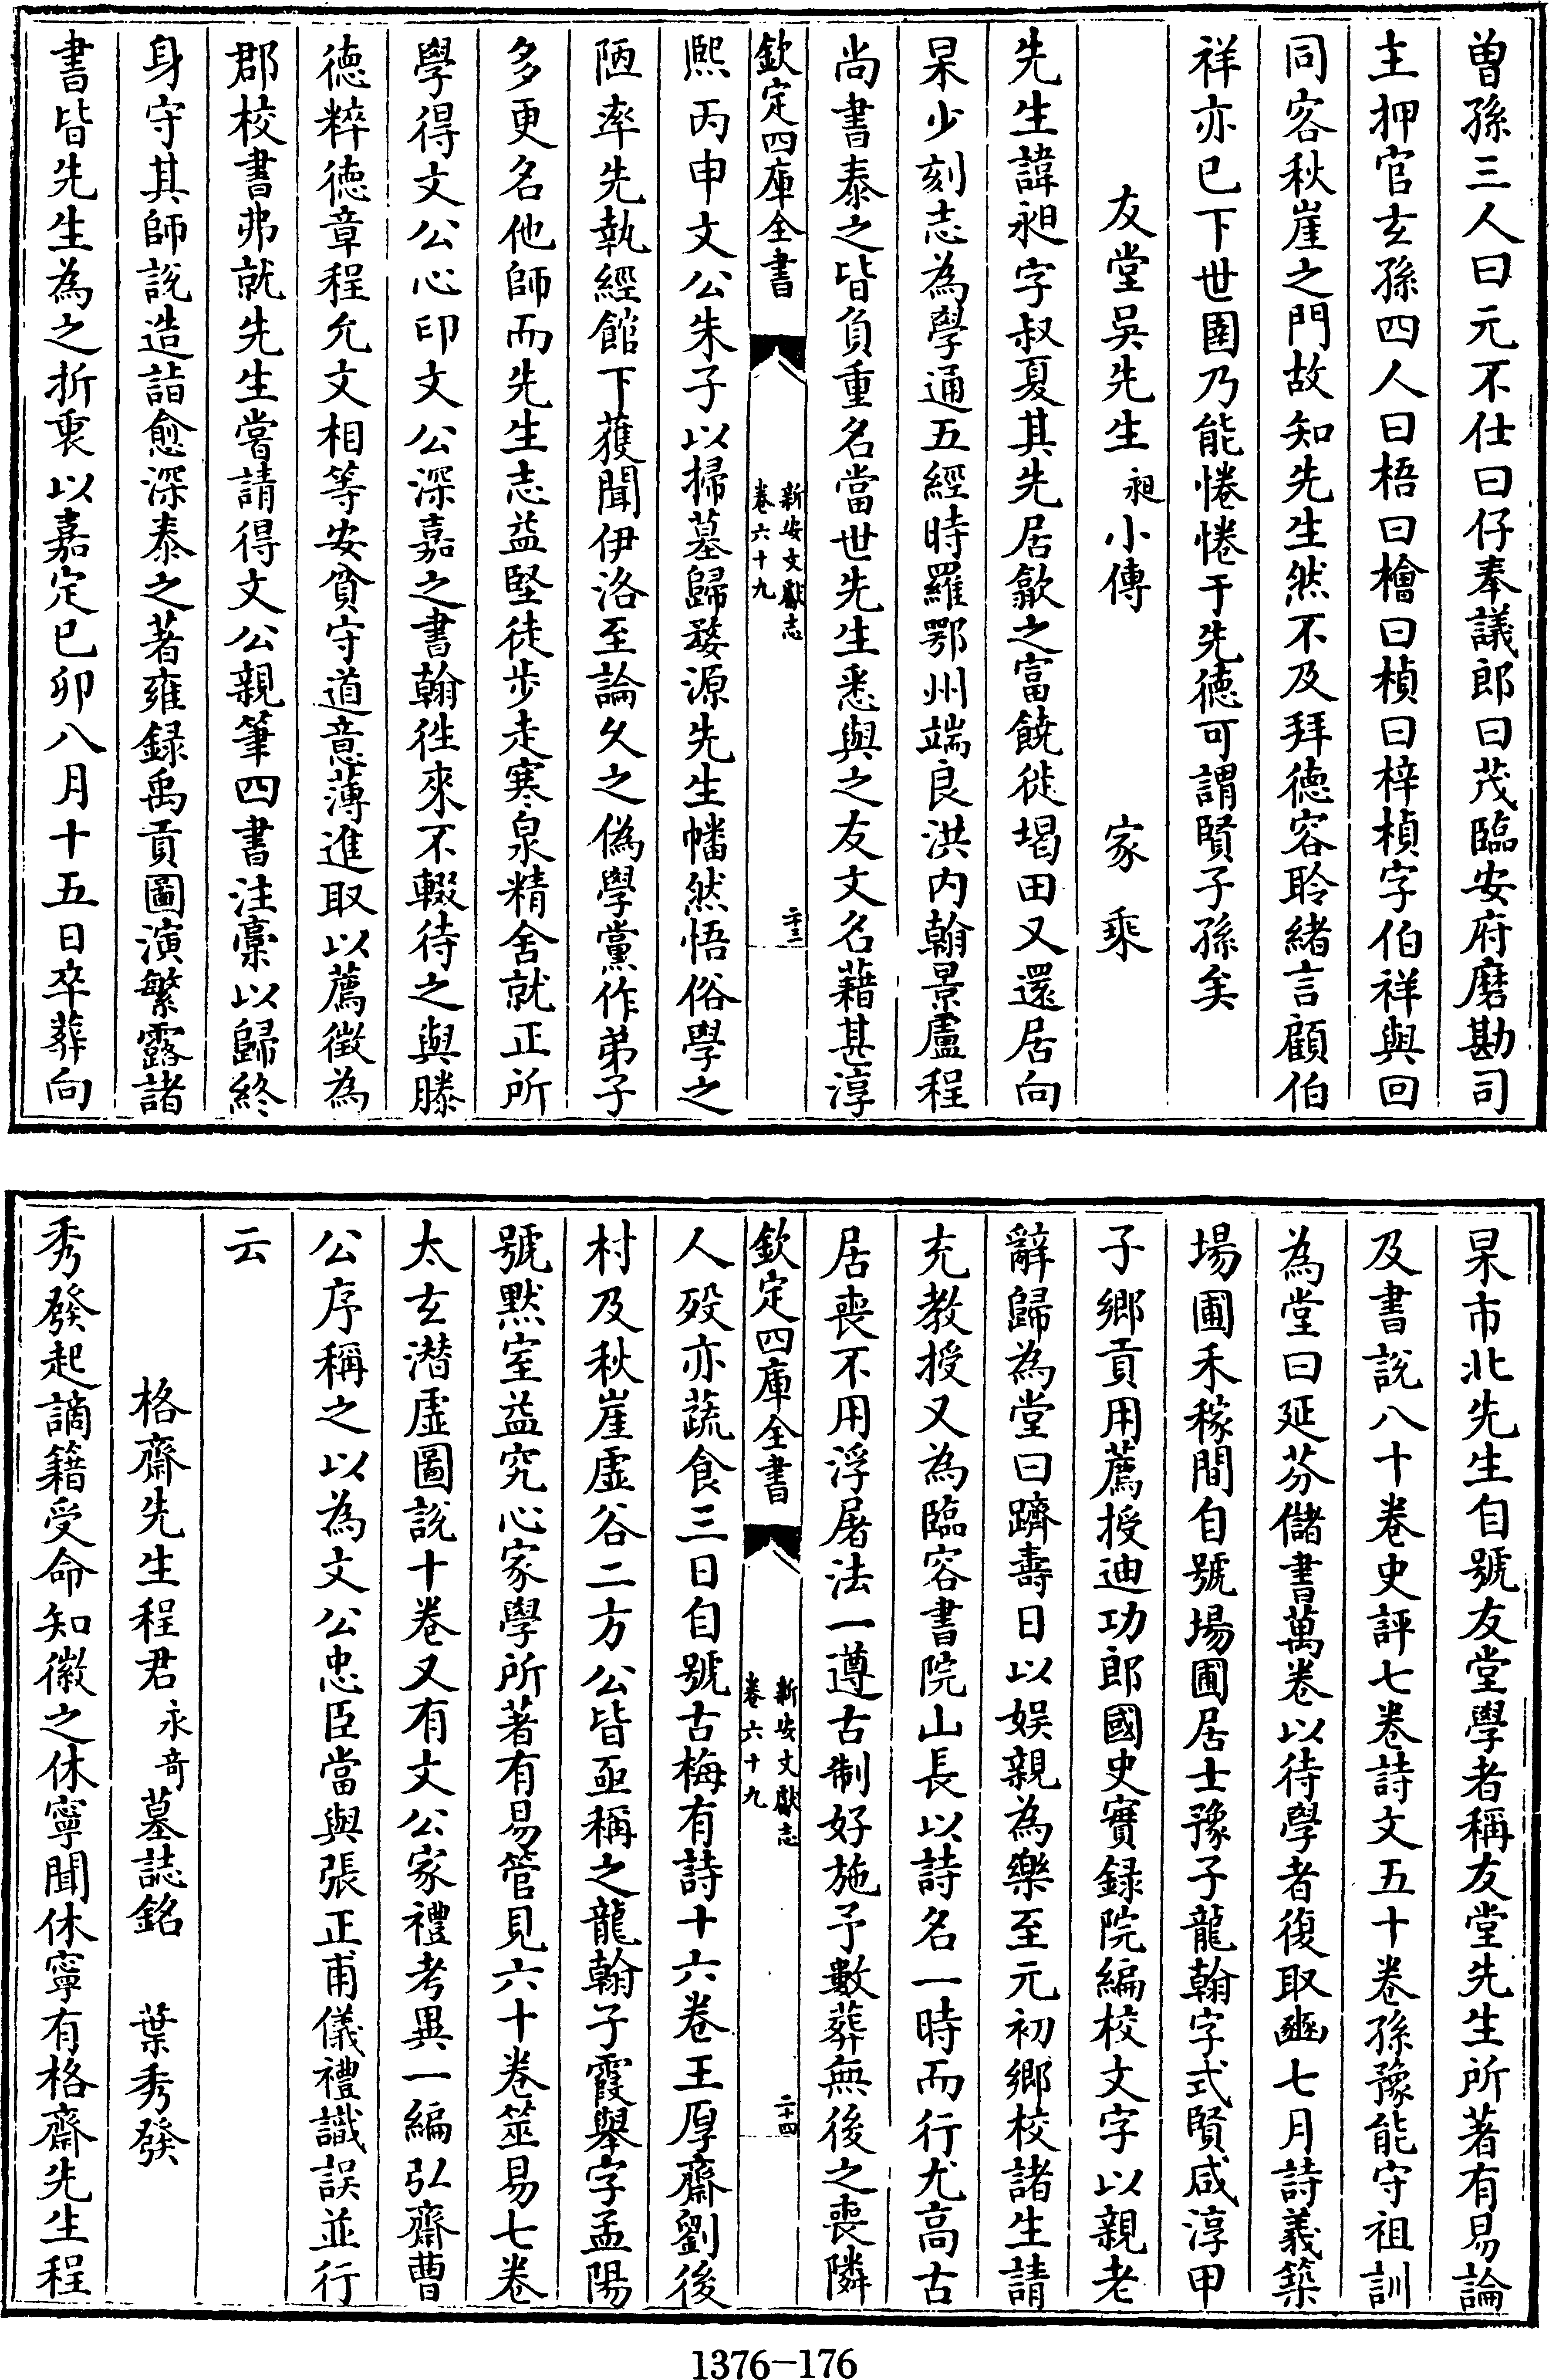 曽孫三人曰元不仕曰仔奉議郎曰茂臨安府磨勘司
主押官玄孫四人曰梧曰檜曰楨曰梓楨字伯祥與回
同客秋崖之門故知先生然不及拜徳容聆緒言顧伯
祥亦已下世圉乃能惓惓于先徳可謂賢子孫矣
友堂吳先生昶小傳 家乘
先生諱昶字叔夏其先居歙之富饒徙堨田又還居向
杲少刻志為學通五經時羅鄂州端良洪内翰景盧程
尚書泰之皆負重名當世先生悉與之友文名藉甚淳
欽定四庫全書 新安文獻志 卷六十九 二十三
熙丙申文公朱子以掃墓歸婺源先生幡然悟俗學之
陋率先執經館下蒦聞伊洛至論久之偽學黨作弟子
多更名他師而先生志益堅徒步走寒泉精舍就正所
學得文公心印文公深嘉之書翰徃來不輟待之與滕
徳粹徳章程允文相等安貧守道意薄進取以薦徵為
郡校書弗就先生嘗請得文公親筆四書注藁以歸終
身守其師說造詣愈深泰之著雍録禹貢圖演繁露諸
書皆先生為之折衷以嘉定己卯八月十五日卒葬向
杲市北先生自號友堂學者稱友堂先生所著有易論
及書說八十卷史評七卷詩文五十卷孫豫能守祖訓
為堂曰延芬儲書萬卷以待學者復取豳七月詩義築
場圃禾稼間自號場圃居士豫子龍翰字式賢咸淳甲
子鄉貢用薦授迪功郎國史實録院編校文字以親老
辭歸為堂曰躋壽日以娯親為樂至元初鄉校諸生請
充教授又為臨容書院山長以詩名一時而行尤高古
居喪不用浮屠法一遵古制好施予數葬無後之喪隣
欽定四庫全書 新安文獻志 卷六十九 二十四
人歿亦蔬食三日自號古梅有詩十六卷王厚齋劉後
村及秋崖虚谷二方公皆亟稱之龍翰子霞舉字孟陽
號黙室益究心家學所著有易管見六十卷筮易七卷
太玄潛虚圖說十卷又有文公家禮考異一編弘齋曹
公序稱之以為文公忠臣當與張正甫儀禮識誤並行
云
格齋先生程君永竒墓誌銘 葉秀發
秀發起謫籍受命知徽之休寧聞休寧有格齋先生程
1376-176